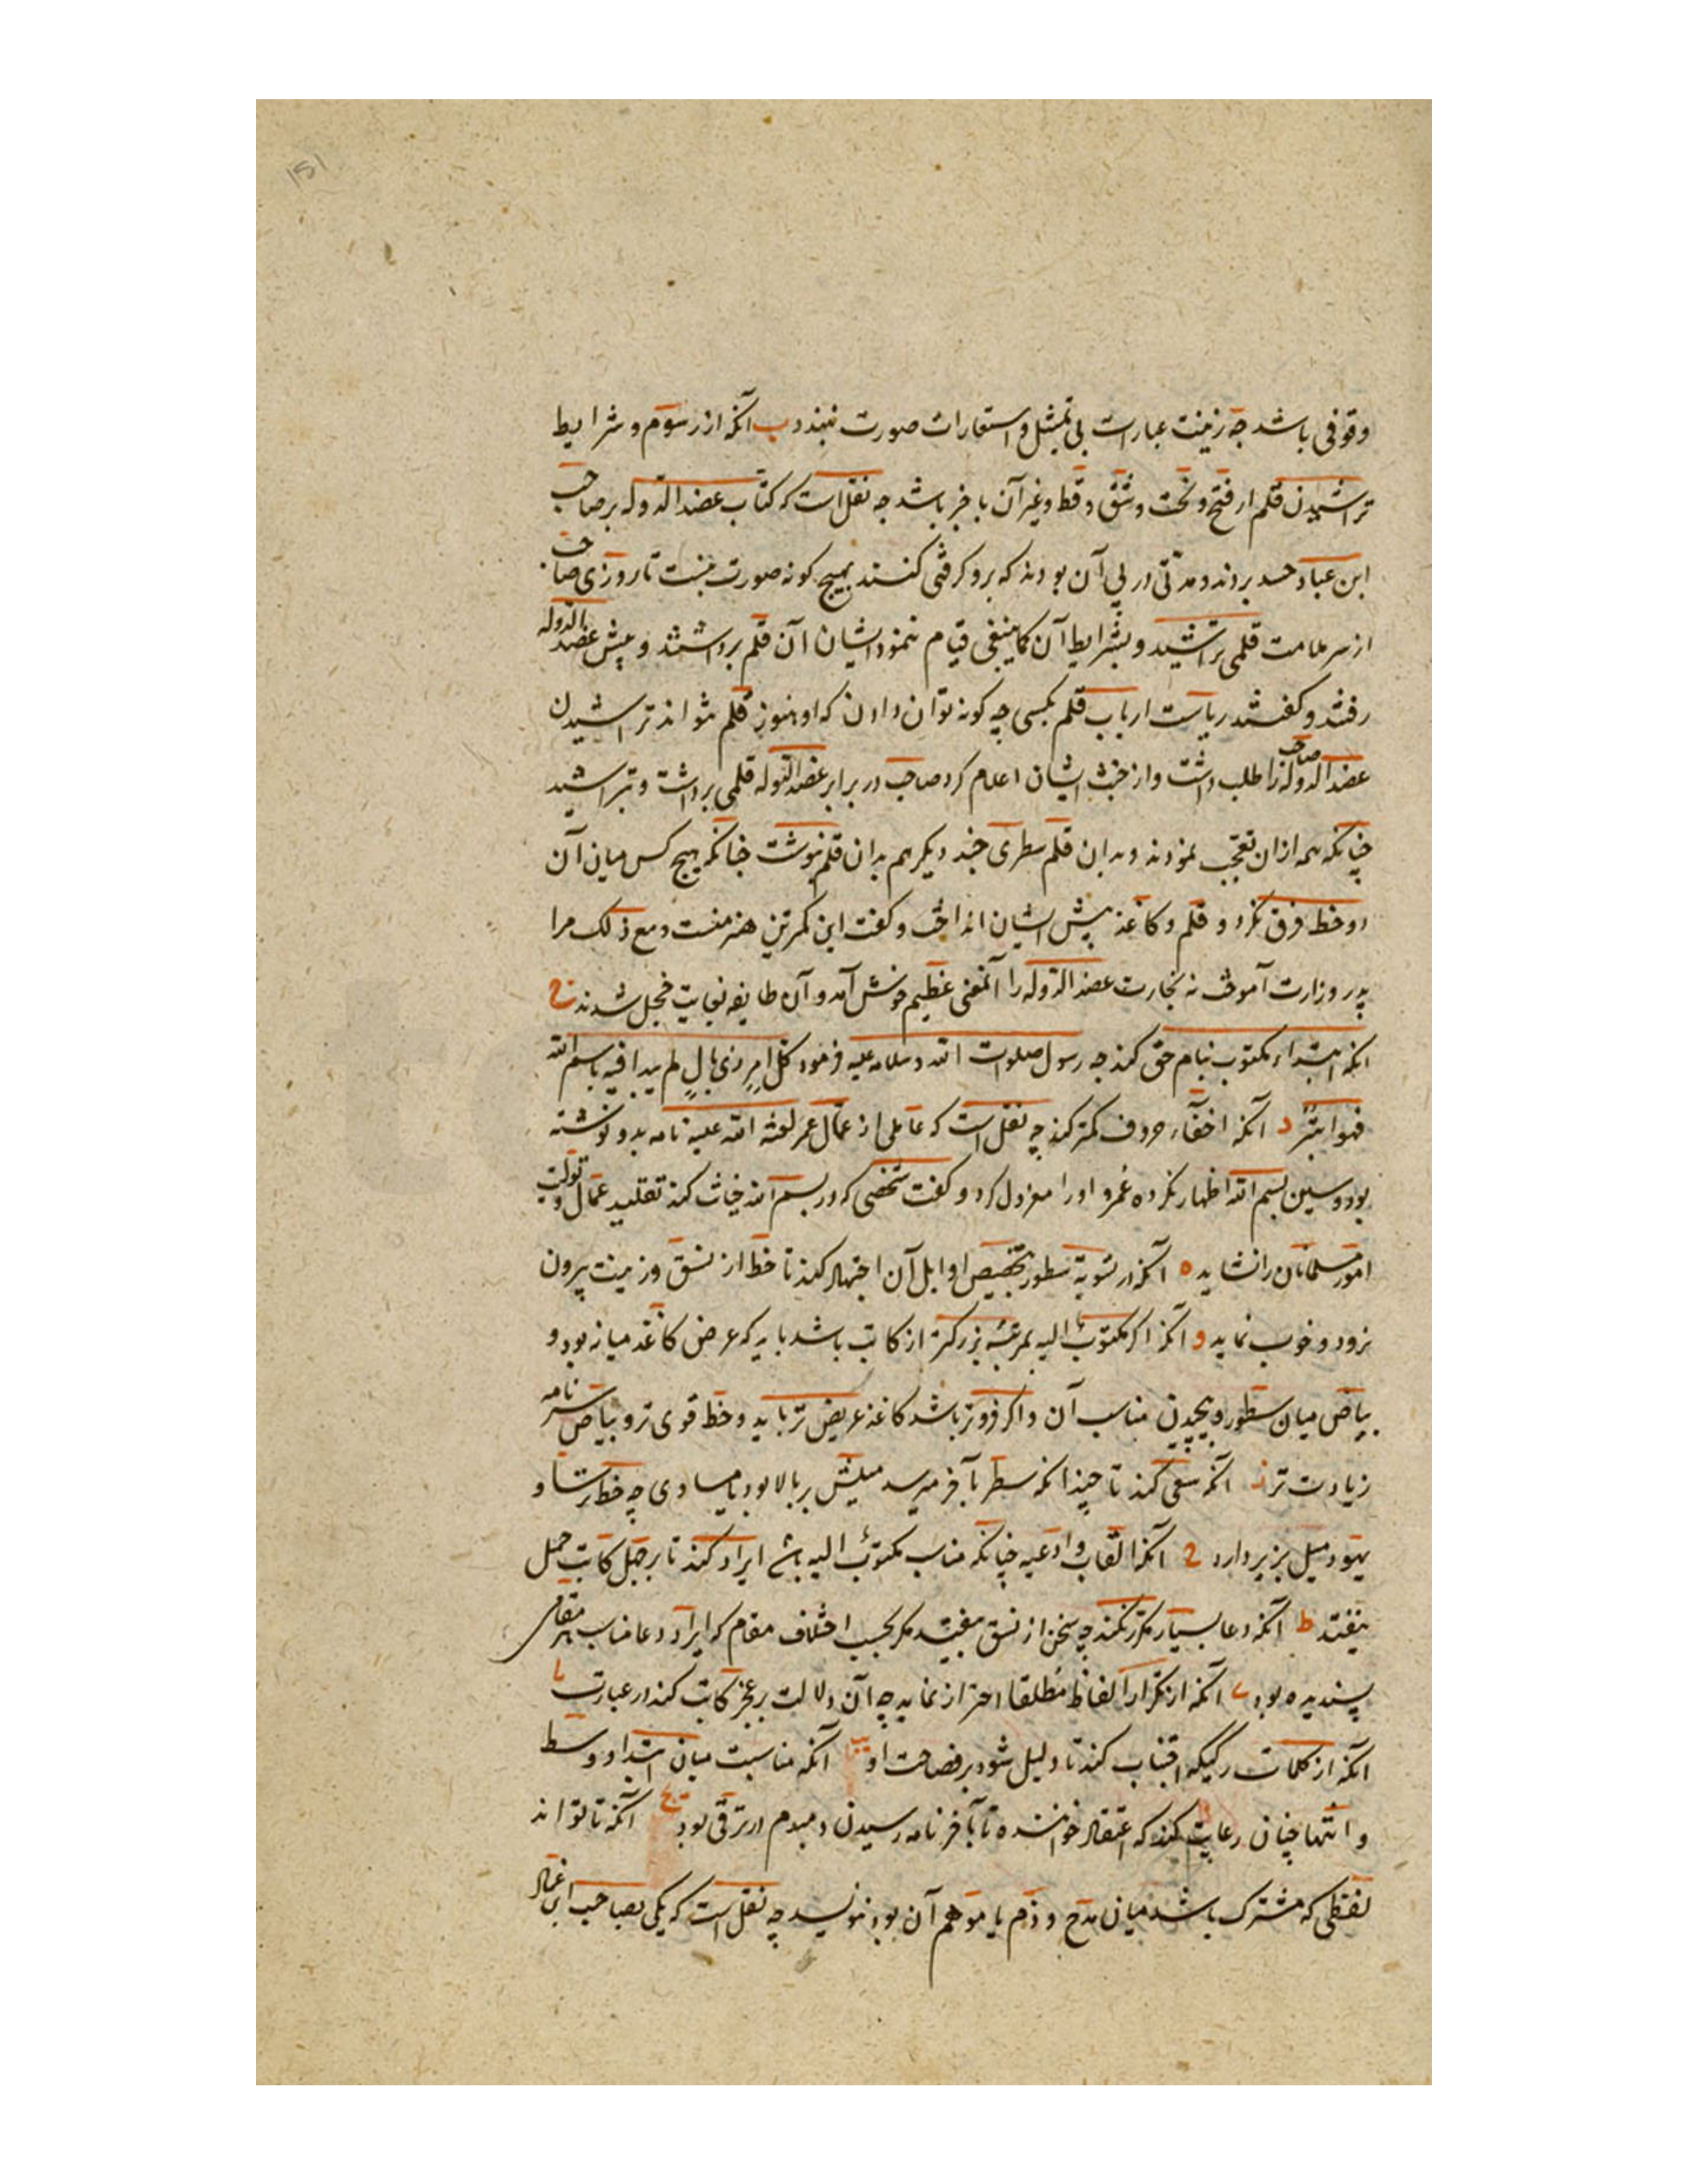 وقوفی باشد چه زینت عبارات بی تمثیل و استعارات صورت نبندد ب آنکه از رسوم و شرایط
تراشیدن قلم از فتح و نحت و شق و قط و غیر آن با خبر باشد چه نقل است که کتاب عضد الدوله بر صاحب
ابن عباد حسد بردند و مدتی در پی آن بودند که برو گرفتی کنند بهیچ گونه صورت نبست تا روزی صاحب
از سر ملامت قلمی تراشید و بشرایط آن کما ینبغی قیام ننمود ایشان آن قلم برداشتند و پیش عضد الدوله
رفتند و گفتند ریاست ارباب قلم بکسی چه گونه توان دادن که او هنوز قلم نتواند تراشیدن
عضد الدوله صاحب را طلب داشت و از خبث ایشان اعلام کرد صاحب در برابر عضد الدوله قلمی برداشت و بتراشید
چنانکه همه ازان تعجب نمودند و بدان قلم سطری چند دیگر هم بدان قلم نوشت چنانکه هیچ کس میان آن
دو خط فرق نکرد و قلم و کاغذ پیش ایشان انداخت و گفت این کمترین هنر منست و مع ذلک مرا
پدر وزارت آموخت نه نجارت عضد الدوله را آن معنی عظیم خوش آمد و آن طایفه بغایت خجل شدند ج
آنکه ابتداء مکتوب بنام حق کند چه رسول صلوات الله و سلامه علیه فرمود کل امر ذی بال لم یبدا فیه باسم الله
فهو ابتر د آنکه اخفاء حروف کمتر کند چه نقل است که عاملی از عمال عمر لعنة الله علیه نامه بدو نوشته
بود و سین بسم الله اظهار نکرده عمر او را معزول کرد و گفت شخصی که در بسم الله خیانت کند تقلید عمال و تولیت
امور مسلمانان را نشاید ه آنکه در تسویة سطور بتخصیص اوایل آن اجتهاد کند تا خط از نسق و زینت بیرون
نرود و خوب نماید و آنکه اگر مکتوب الیه بمرتبه بزرگتر از کاتب باشد باید که عرض کاغذ میانه بود و
بیاض میان سطور و پیچیدن مناسب آن و اگر فروتر باشد کاغذ عریض تر باید و خط قوی تر و بیاض سرنامه
زیادت تر ز آنکه سعی کند تا چندانکه سطر بآخر میرسد میلش بر بالا بود یا مساوی چه خط ترسا و
یهود میل بزیر دارد ح آنکه القاب و ادعیه چنانکه مناسب مکتوب الیه باشد ایراد کند تا بر جهل کاتب حمل
نیفتد ط آنکه دعا بسیار مکرر نکند چه سخن از نسق بیفتد مگر بحسب اختلاف مقام که ایراد دعا مناسب هر مقامی
پسندیده بود ی آنکه از تکرار الفاظ مطلقا احتراز نماید چه آن دلالت بر عجز کاتب کند در عبارت یا
آنکه از کلمات رکیکه اجتناب کند تا دلیل شود بر فصاحت او یب آنکه مناسبت میان ابتدا و وسط
و انتها چنان رعایت کند که اعتقاد خواننده تا بآخر نامه رسیدن دمبدم در ترقی بود یج آنکه تا تواند
لفظی که مشترک باشد میان مدح و ذم یا موهم آن بود ننویسد چه نقل است که یکی بصاحب ابن عباد